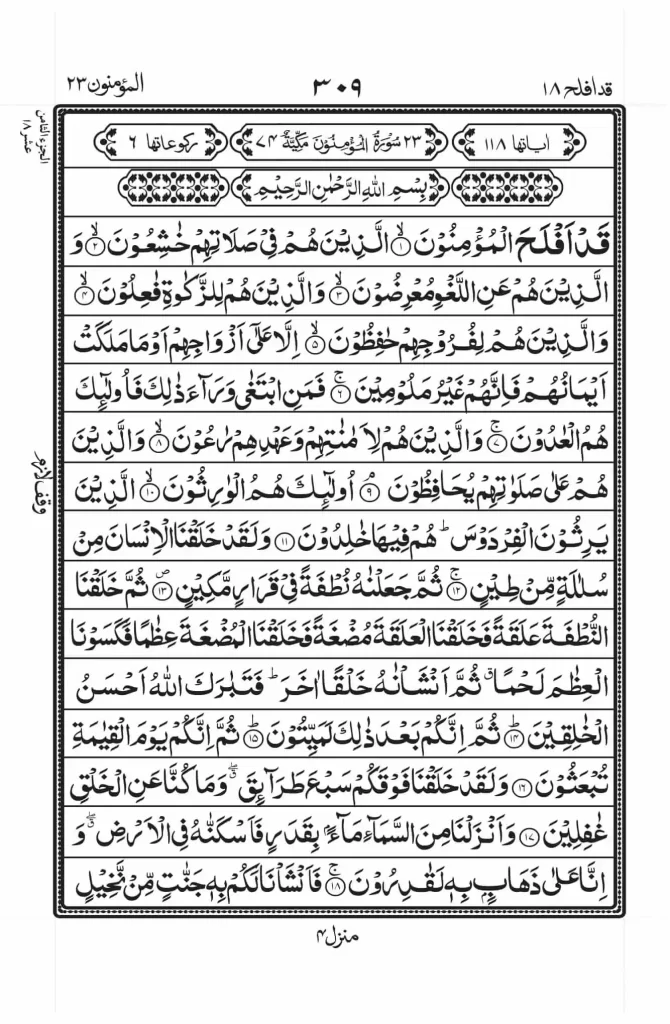 قد افلح ۱۸
۳۰۹
المؤمنون ۲۳
الجزء الثامن عشر ۱۸
اٰیاتها ۱۱۸
۲۳ سُوْرَةُ الْمُؤْمِنُوْنَ مَكِّيَّةٌ ۷۴
رکوعاتها ۶
بِسْمِ اللهِ الرَّحْمٰنِ الرَّحِيْمِ
قَدْ اَفْلَحَ الْمُؤْمِنُوْنَ ۙ﴿۱﴾ الَّذِيْنَ هُمْ فِيْ صَلَاتِهِمْ خٰشِعُوْنَ ۙ﴿۲﴾ وَ
الَّذِيْنَ هُمْ عَنِ اللَّغْوِ مُعْرِضُوْنَ ۙ﴿۳﴾ وَالَّذِيْنَ هُمْ لِلزَّكٰوةِ فٰعِلُوْنَ ۙ﴿۴﴾
وَالَّذِيْنَ هُمْ لِفُرُوْجِهِمْ حٰفِظُوْنَ ۙ﴿۵﴾ اِلَّا عَلٰٓى اَزْوَاجِهِمْ اَوْ مَا مَلَكَتْ
اَيْمَانُهُمْ فَاِنَّهُمْ غَيْرُ مَلُوْمِيْنَ ۚ﴿۶﴾ فَمَنِ ابْتَغٰى وَرَآءَ ذٰلِكَ فَاُولٰٓئِكَ
هُمُ الْعٰدُوْنَ ۚ﴿۷﴾ وَالَّذِيْنَ هُمْ لِاَمٰنٰتِهِمْ وَعَهْدِهِمْ رٰعُوْنَ ۙ﴿۸﴾ وَالَّذِيْنَ
هُمْ عَلٰى صَلَوٰتِهِمْ يُحَافِظُوْنَ ۘ﴿۹﴾ اُولٰٓئِكَ هُمُ الْوٰرِثُوْنَ ۙ﴿۱۰﴾ الَّذِيْنَ
وقف لازم
يَرِثُوْنَ الْفِرْدَوْسَ ؕ هُمْ فِيْهَا خٰلِدُوْنَ ﴿۱۱﴾ وَلَقَدْ خَلَقْنَا الْاِنْسَانَ مِنْ
سُلٰلَةٍ مِّنْ طِيْنٍ ۚ﴿۱۲﴾ ثُمَّ جَعَلْنٰهُ نُطْفَةً فِيْ قَرَارٍ مَّكِيْنٍ ۪﴿۱۳﴾ ثُمَّ خَلَقْنَا
النُّطْفَةَ عَلَقَةً فَخَلَقْنَا الْعَلَقَةَ مُضْغَةً فَخَلَقْنَا الْمُضْغَةَ عِظٰمًا فَكَسَوْنَا
الْعِظٰمَ لَحْمًا ۗ ثُمَّ اَنْشَاْنٰهُ خَلْقًا اٰخَرَ ؕ فَتَبٰرَكَ اللهُ اَحْسَنُ
الْخٰلِقِيْنَ ؕ﴿۱۴﴾ ثُمَّ اِنَّكُمْ بَعْدَ ذٰلِكَ لَمَيِّتُوْنَ ؕ﴿۱۵﴾ ثُمَّ اِنَّكُمْ يَوْمَ الْقِيٰمَةِ
تُبْعَثُوْنَ ﴿۱۶﴾ وَلَقَدْ خَلَقْنَا فَوْقَكُمْ سَبْعَ طَرَآئِقَ ۖ وَمَا كُنَّا عَنِ الْخَلْقِ
غٰفِلِيْنَ ﴿۱۷﴾ وَاَنْزَلْنَا مِنَ السَّمَآءِ مَآءًۢ بِقَدَرٍ فَاَسْكَنّٰهُ فِي الْاَرْضِ ۖ وَ
اِنَّا عَلٰى ذَهَابٍۭ بِهٖ لَقٰدِرُوْنَ ۚ﴿۱۸﴾ فَاَنْشَاْنَا لَكُمْ بِهٖ جَنّٰتٍ مِّنْ نَّخِيْلٍ
منزل ۴